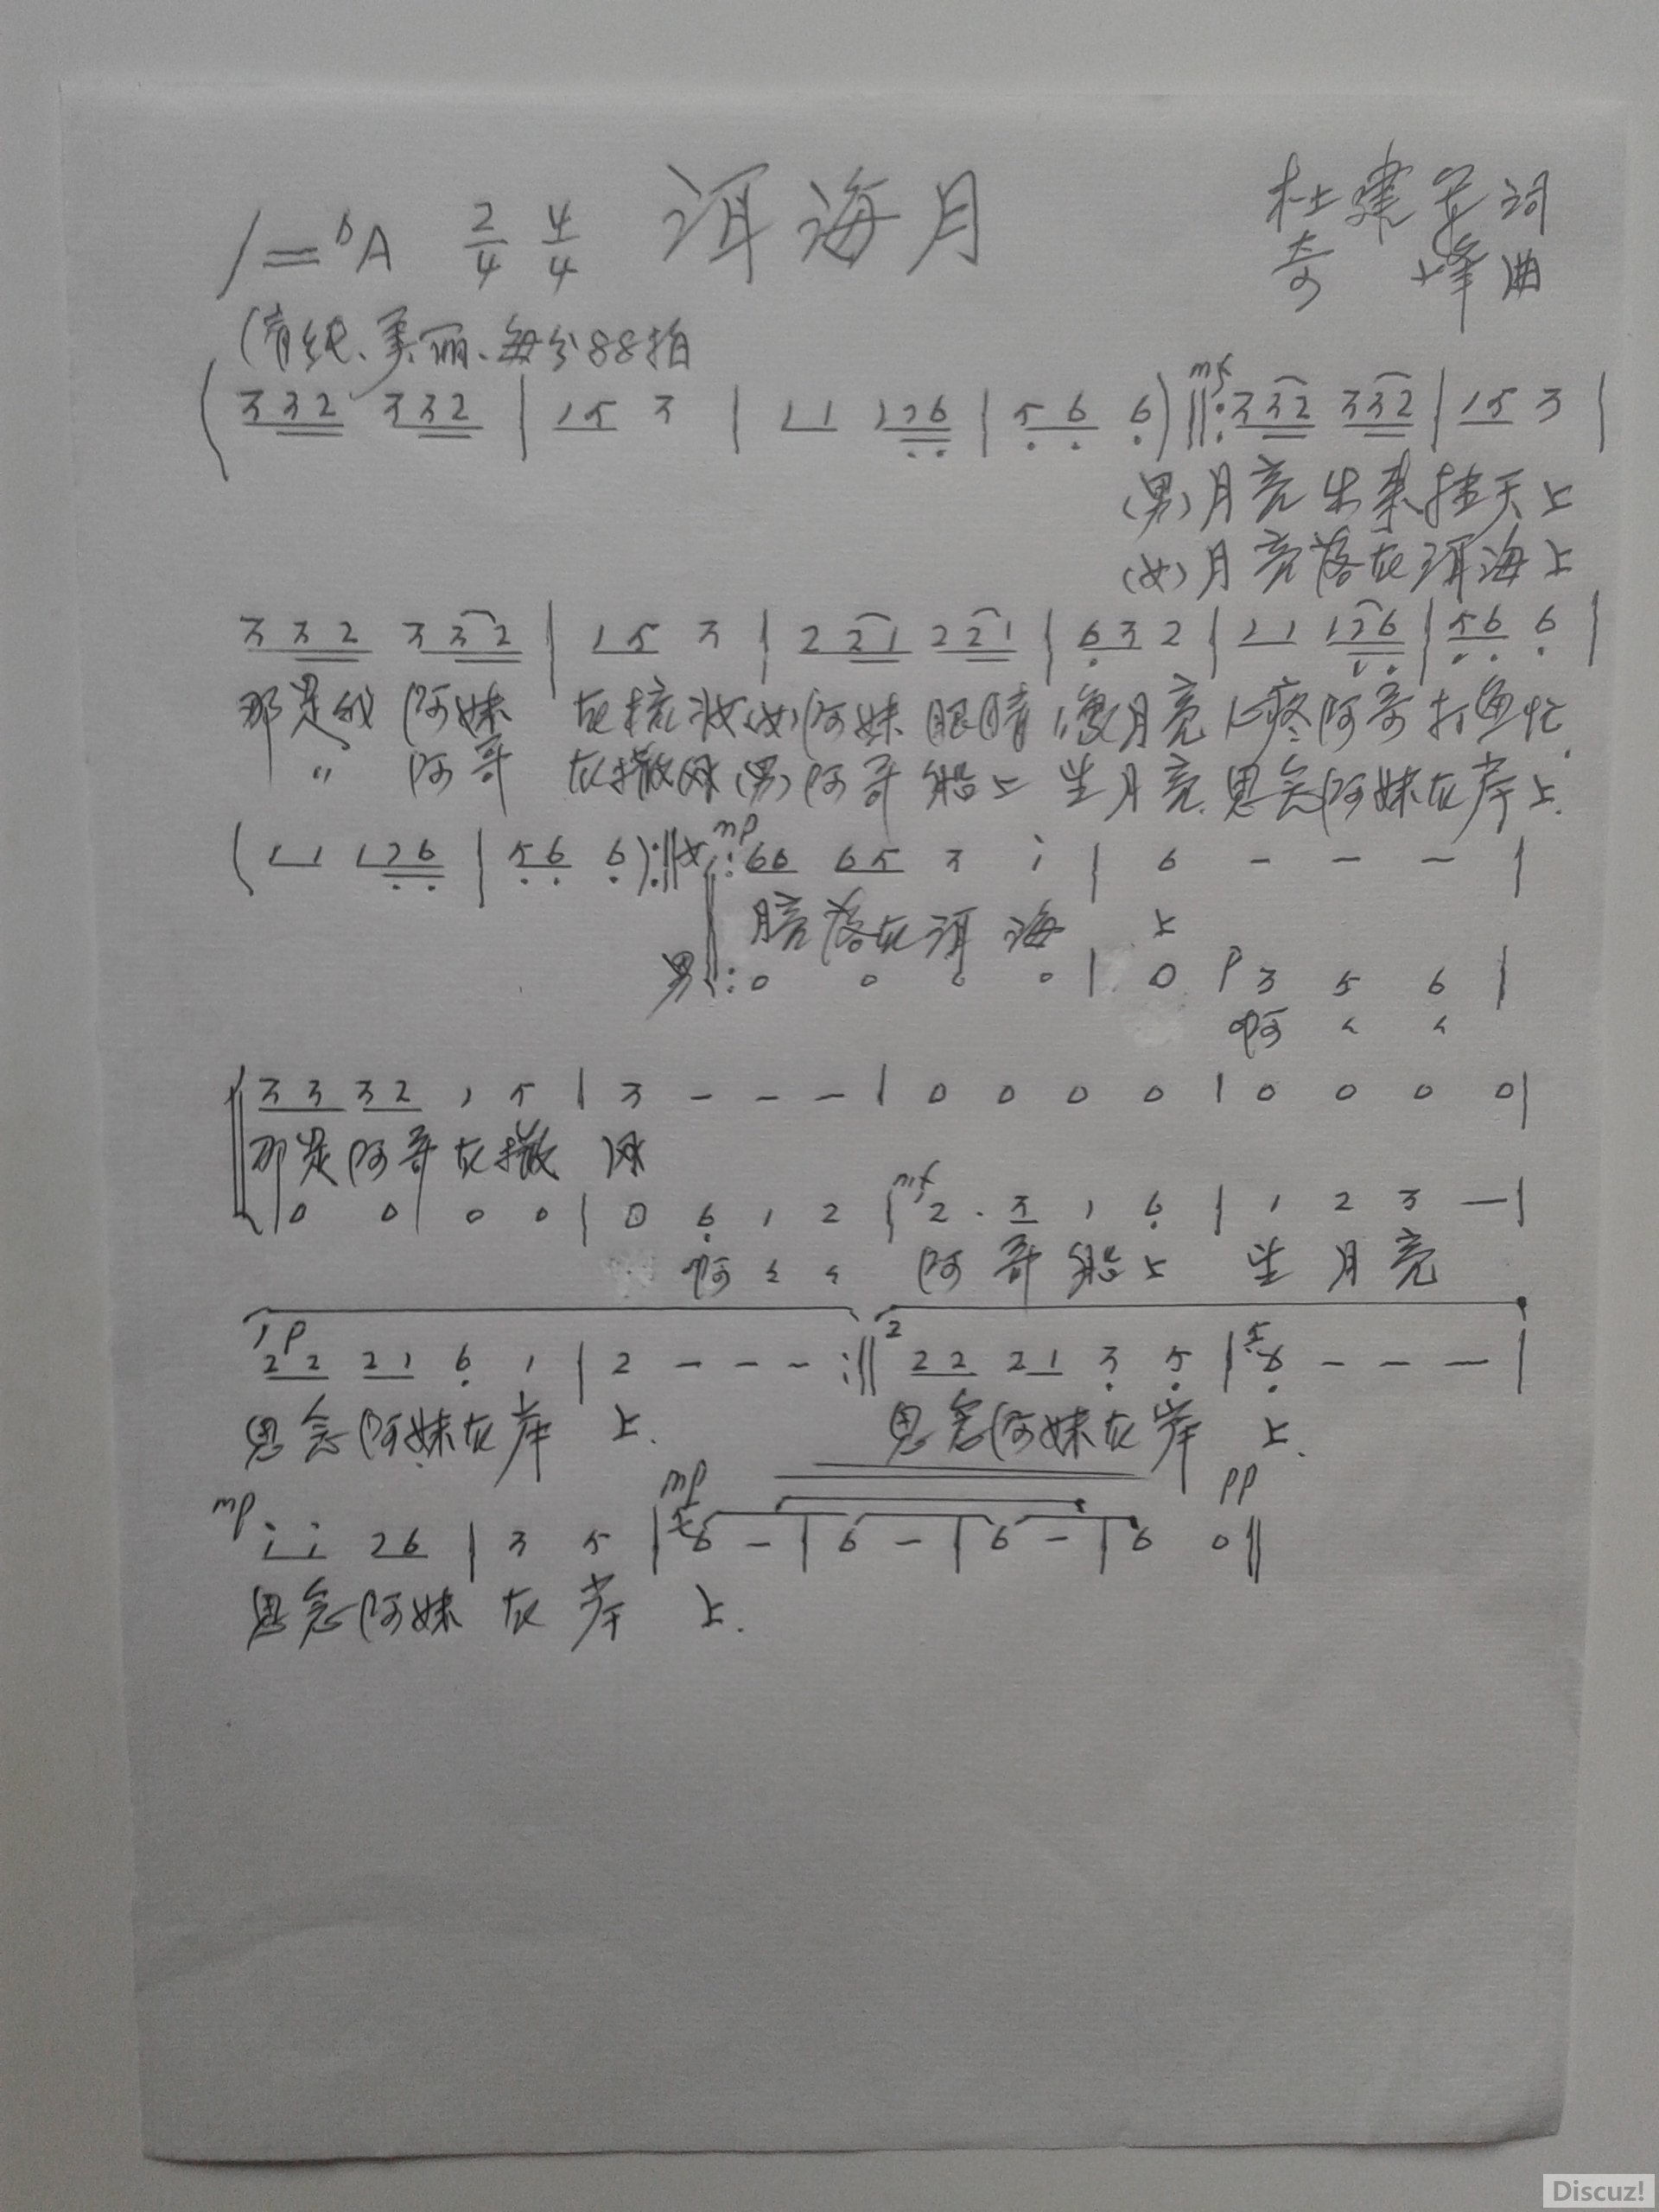 1=ᵇA 2/4 4/4 洱海月 杜建军词
奇峰曲
(清纯、美丽、每分88拍
( 3 3 2 3 3 2 | 1 5 3 | 1 1 1 7 6 | 5 6 6 ) ‖: mf 3 3 2 3 3 2 | 1 5 3 |
(男)月亮出来挂天上
(女)月亮落在洱海上
3 3 2 3 3 2 | 1 5 3 | 2 2 1 2 2 1 | 6 3 2 | 1 1 1 7 6 | 5 6 6 |
那是我阿妹在梳妆(女)阿妹眼睛像月亮心疼阿哥打鱼忙.
〃 阿哥在撒网(男)阿哥船上坐月亮.思念阿妹在岸上.
( 1 1 1 7 6 | 5 6 6 ) :‖ 女 mp : 6 6 6 5 3 i | 6 - - - |
月亮落在洱海上
男 : 0 0 0 0 | 0 p 3 5 6 |
啊
3 3 3 2 1 5 | 3 - - - | 0 0 0 0 | 0 0 0 0 |
那是阿哥在撒网
0 0 0 0 | 0 6 1 2 | mf 2 . 3 1 6 | 1 2 3 — |
啊 阿哥船上坐月亮
1 p 2 2 2 1 6 1 | 2 - - - :‖ 2 2 2 2 1 3 5 | 5 6 - - - |
思念阿妹在岸上. 思念阿妹在岸上.
mp i i 2 6 | 3 5 | mp 5 6 - | 6 - | 6 - | 6 0 ‖ pp
思念阿妹在岸上.
Discuz!